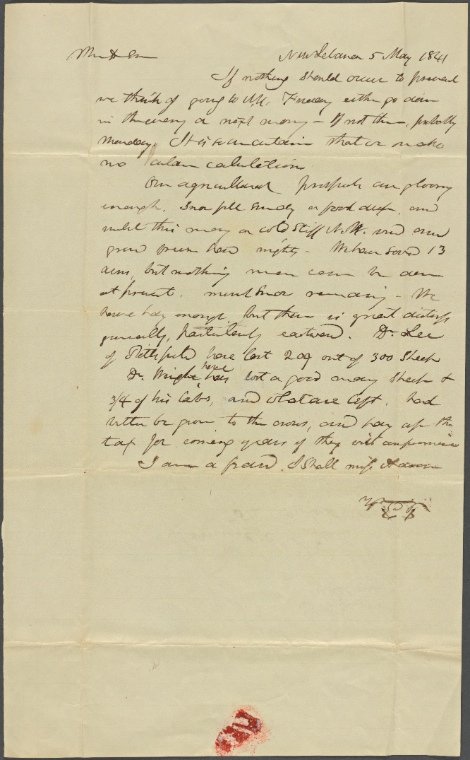 New Lebanon 5 May 1841
If nothing should occur to prevent
we think of going to N.Y. Tuesday either go down
in the eveng or next morng - If not then, probably
Monday. It is so uncertain that we make
no calculation
Our agricultural prospects are gloomy
enough. Snow fell Sunday a foot deep, and
until this morng a cold stiff N.W. wind and
ground frozen hard nights. We have sowed 13
acres, but nothing more can be done
at present. most snow remaining - We
have hay enough, but there is great distress
generally, particularly eastward. Dr. Lee
of Pittsfield have lost 209 out of 300 sheep
Dr. Wright here has lost a good many sheep &
3/4 of his lambs, and what are left, had
better be given to the crows, and pay up the
tax for coming years if they will compromise
I am afraid I shall miss